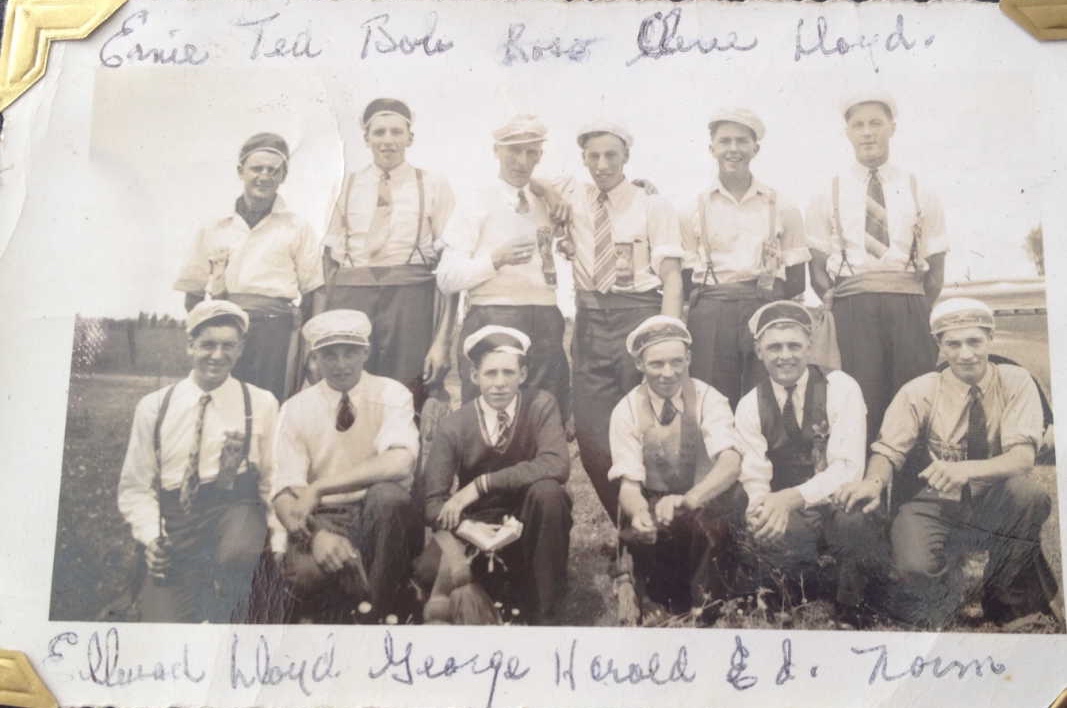 Ernie Ted Bob Ross Cleve Lloyd.
Ellwood Lloyd George Harold Ed. Norm